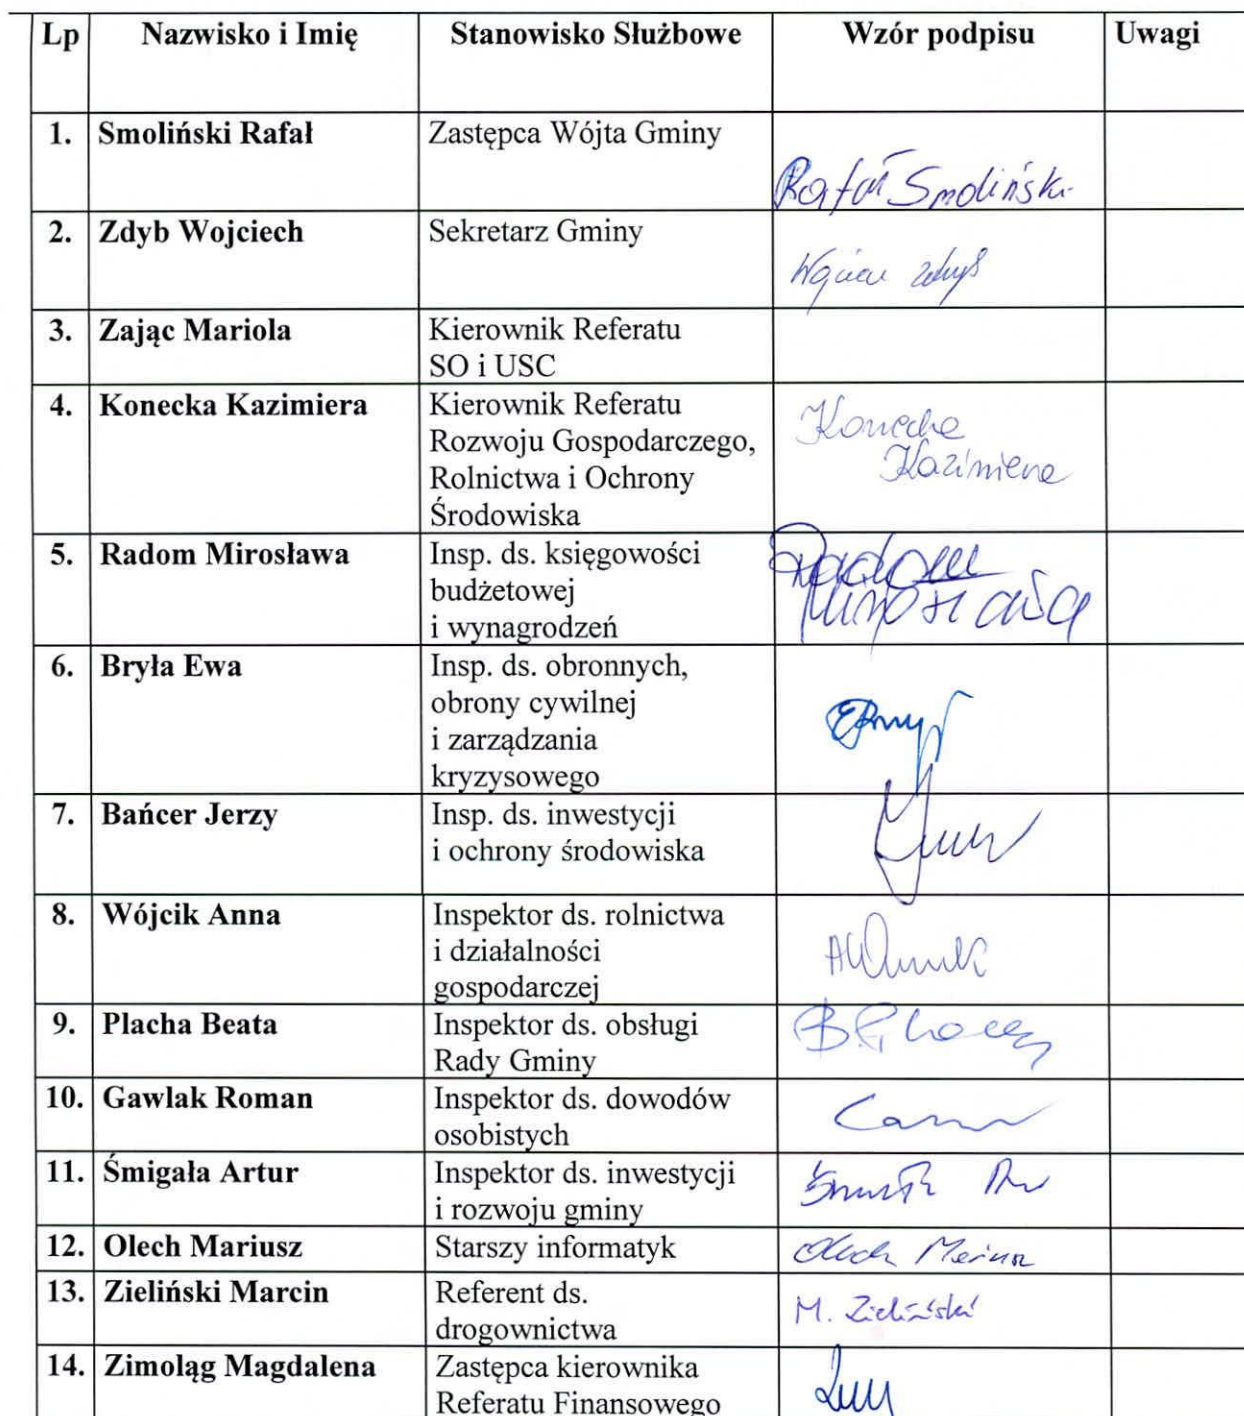 Lp Nazwisko i Imię Stanowisko Służbowe Wzór podpisu Uwagi
1. Smoliński Rafał Zastępca Wójta Gminy
Rafał Smoliński
2. Zdyb Wojciech Sekretarz Gminy
Zdyb
3. Zając Mariola Kierownik Referatu
SO i USC
4. Konecka Kazimiera Kierownik Referatu Konecka
Rozwoju Gospodarczego, Kazimiera
Rolnictwa i Ochrony
Środowiska
5. Radom Mirosława Insp. ds. księgowości Radom
budżetowej Mirosława
i wynagrodzeń
6. Bryła Ewa Insp. ds. obronnych,
obrony cywilnej
i zarządzania
kryzysowego
7. Bańcer Jerzy Insp. ds. inwestycji
i ochrony środowiska
8. Wójcik Anna Inspektor ds. rolnictwa
i działalności
gospodarczej
9. Placha Beata Inspektor ds. obsługi
Rady Gminy
10. Gawlak Roman Inspektor ds. dowodów
osobistych
11. Śmigała Artur Inspektor ds. inwestycji
i rozwoju gminy
12. Olech Mariusz Starszy informatyk Olech Mariusz
13. Zieliński Marcin Referent ds. M. Zieliński
drogownictwa
14. Zimoląg Magdalena Zastępca kierownika
Referatu Finansowego